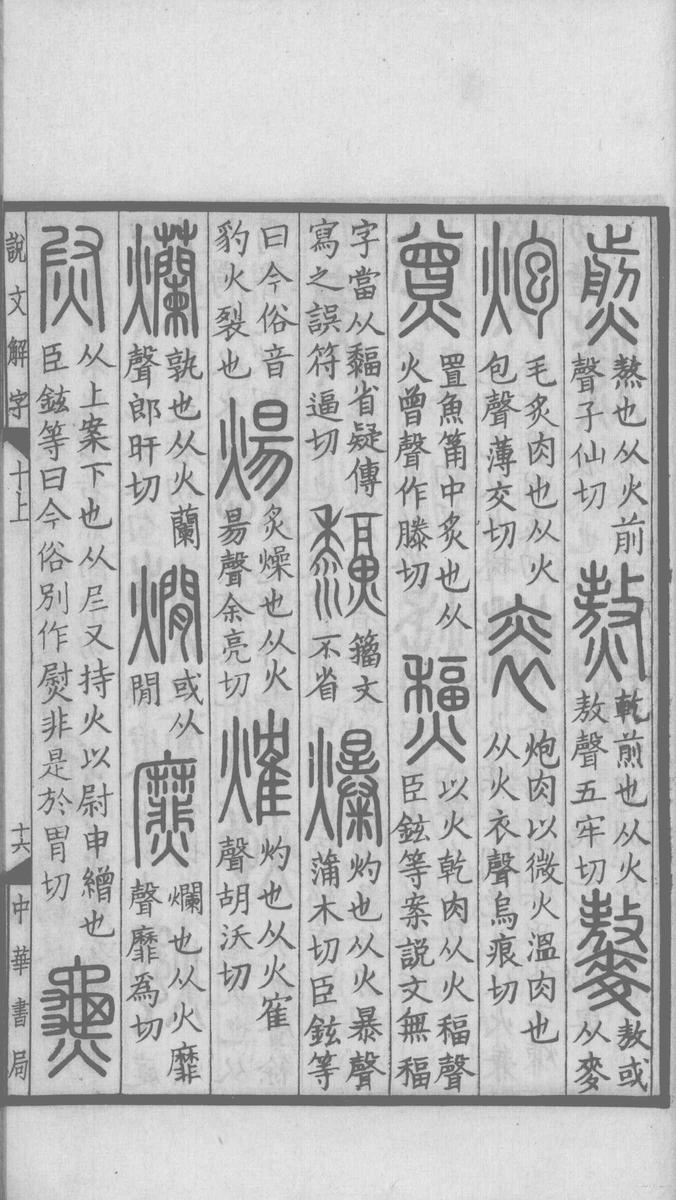 煎熬也从火前聲子仙切熬乾煎也从火敖聲五牢切敖或从麥
炮毛炙肉也从火包聲薄交切炮肉以微火溫肉也从火衣聲烏痕切
置魚筩中炙也从火曾聲作滕切以火乾肉从火稫聲臣鉉等案說文無稫
字當从䵗省疑傳寫之誤符逼切籒文不省爆灼也从火暴聲蒲木切臣鉉等
曰今俗音豹火裂也煬炙燥也从火昜聲余亮切㷤灼也从火寉聲胡沃切
爤孰也从火蘭聲郎旰切燗或从閒爢爛也从火靡聲靡爲切
尉从上案下也从𡰥又持火以尉申繒也臣鉉等曰今俗別作熨非是於胃切
說文解字 十上 十六 中華書局